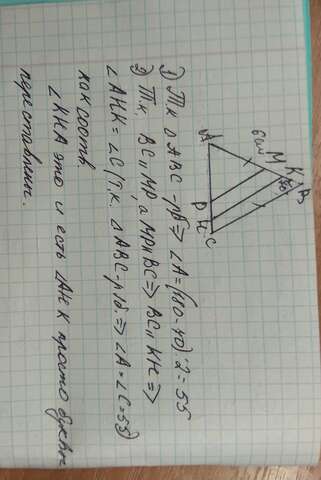 A
6см
M
K
B
70
P
H
C
1) Т.к. △ABC - р/б => ∠A = (180 - 70) : 2 = 55
2) Т.к. BC || MP, а MP || BC => BC || KH =>
∠AHK = ∠C (Т.к. △ABC - р/б. => ∠A = ∠C = 55)
как соотв.
∠KHA это и есть ∠AHK просто буквы
переставлены.